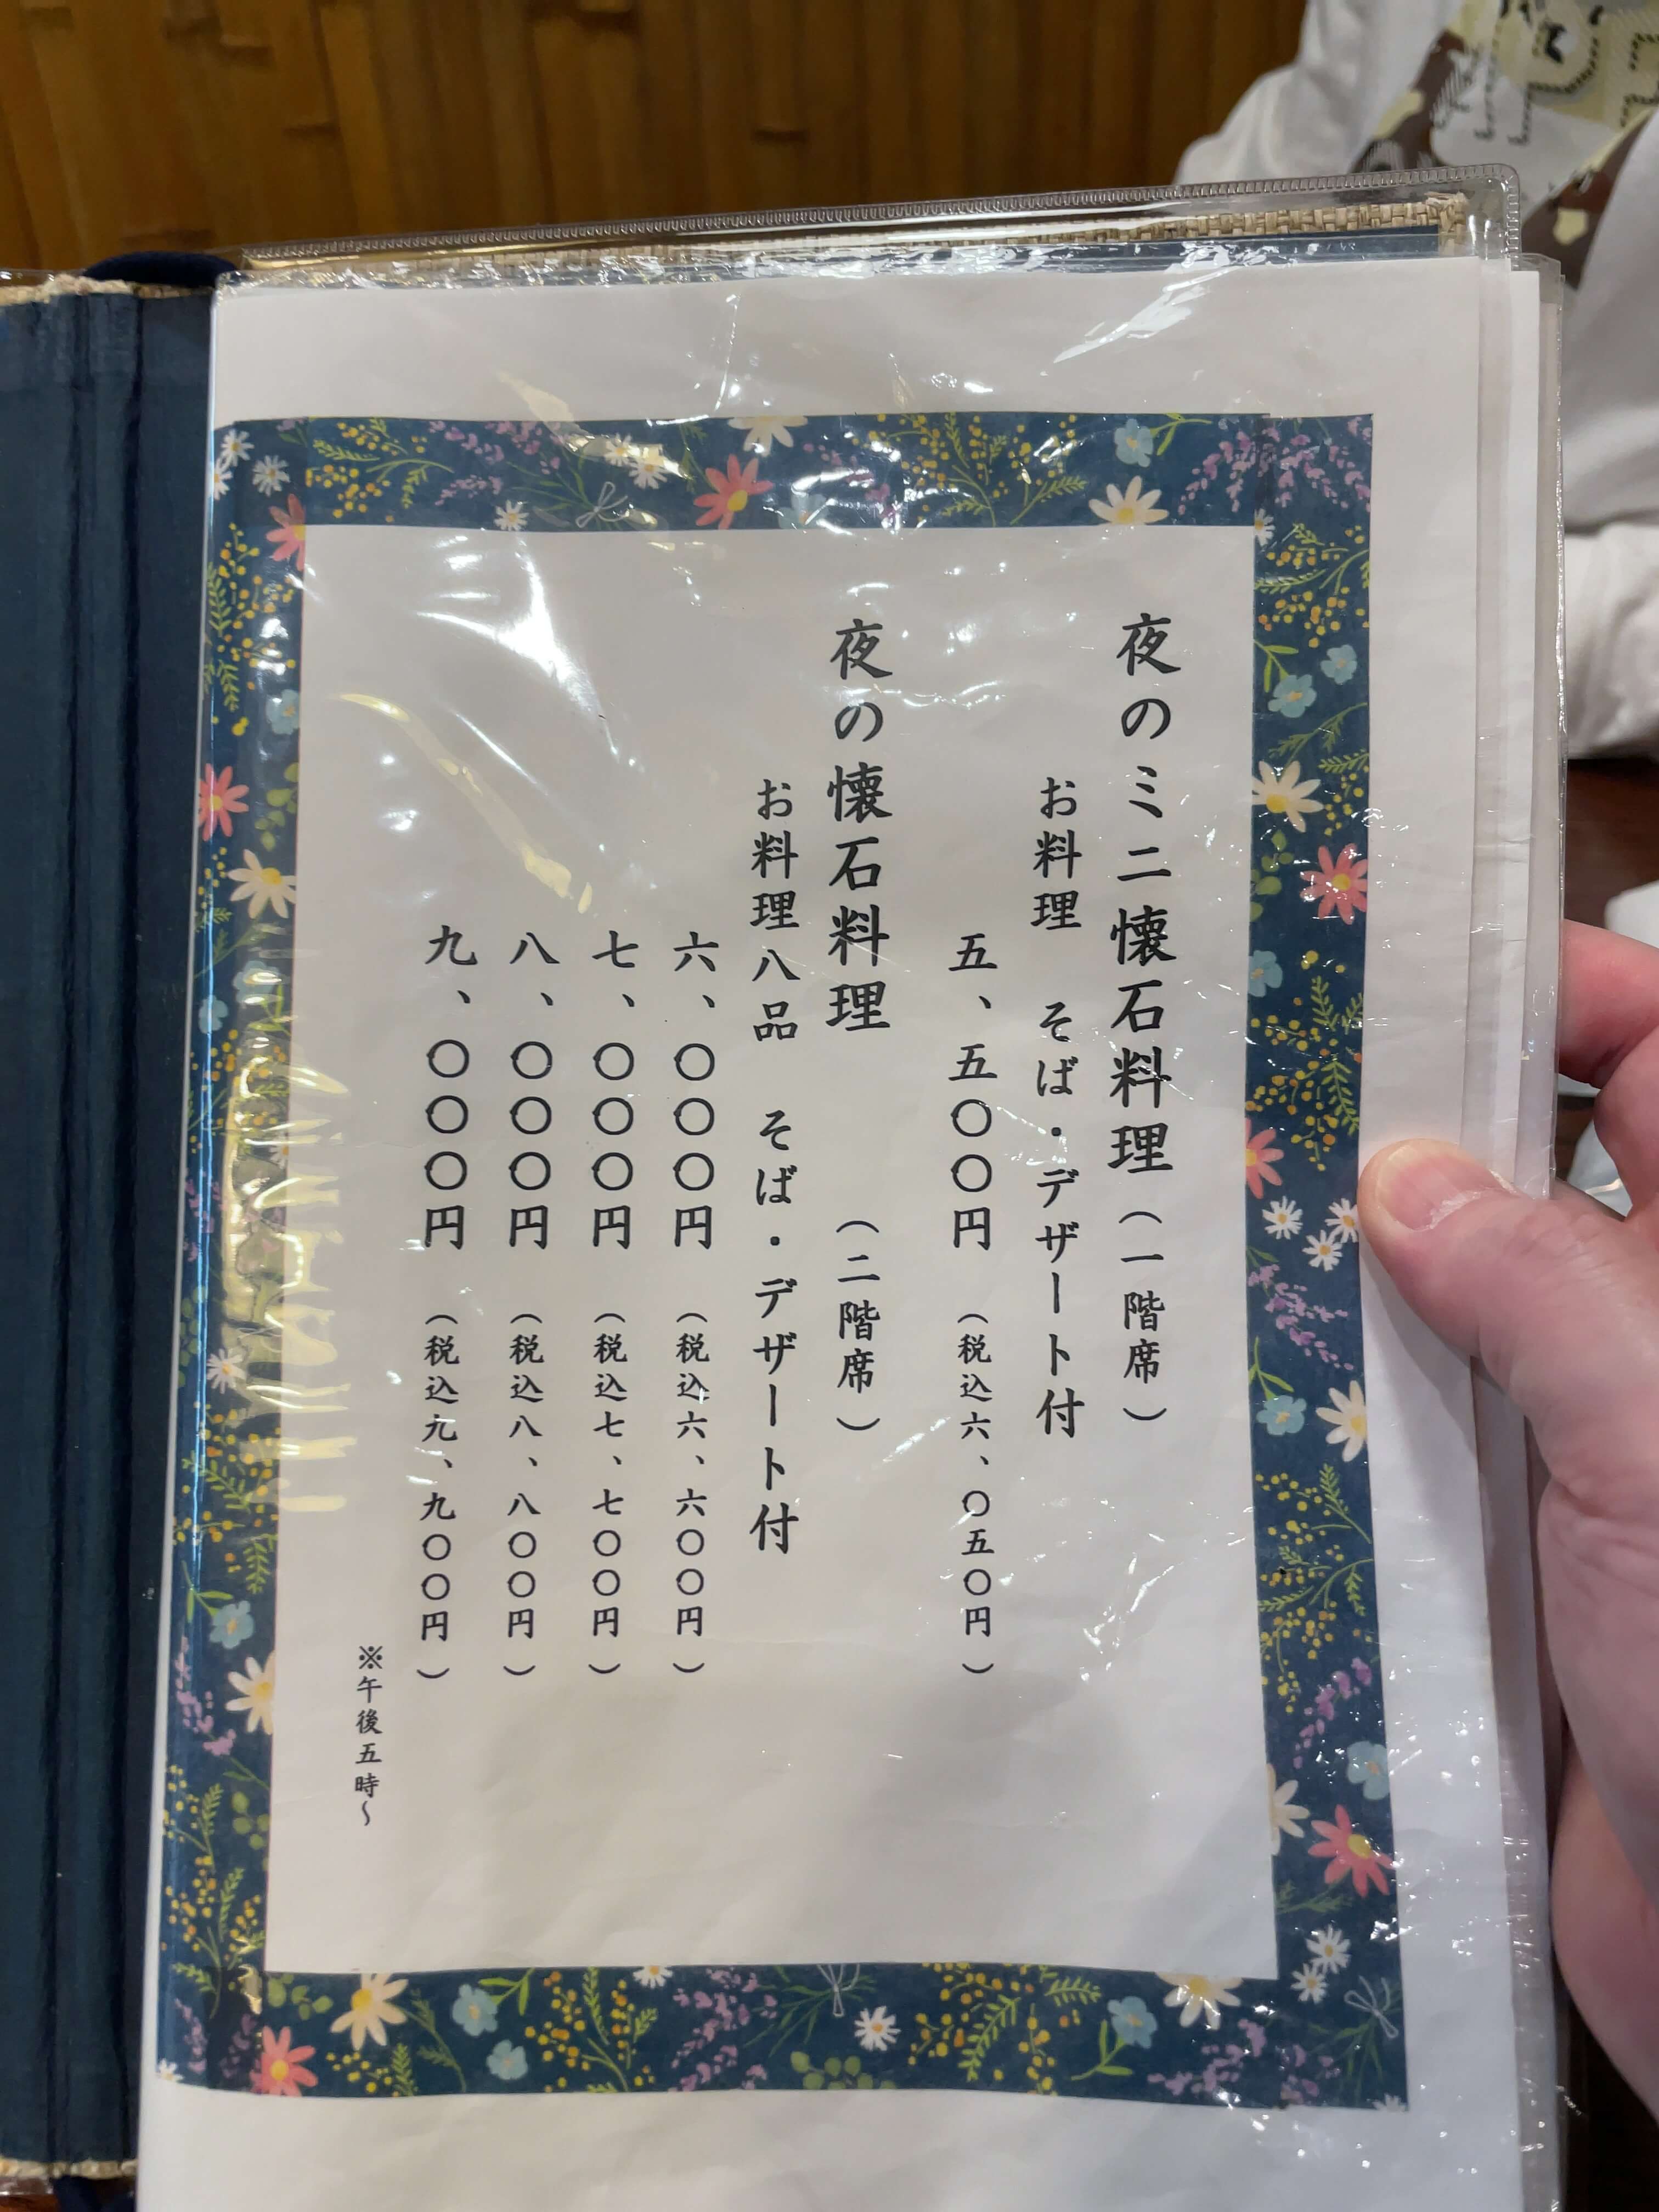 夜のミニ懐石料理(一階席)
お料理 そば・デザート付
五、五〇〇円 (税込六、〇五〇円)
夜の懐石料理 (二階席)
お料理八品 そば・デザート付
六、〇〇〇円 (税込六、六〇〇円)
七、〇〇〇円 (税込七、七〇〇円)
八、〇〇〇円 (税込八、八〇〇円)
九、〇〇〇円 (税込九、九〇〇円)
※午後五時~